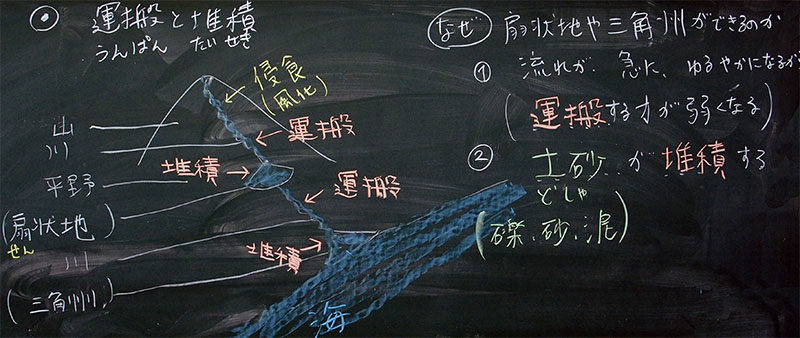 運搬と堆積
うんぱん たいせき
侵食
(風化)
山
川
運搬
平野
堆積
運搬
(扇状地)
せん
川
堆積
(三角州)
海
なぜ 扇状地や三角州ができるのか
① 流れが、急に、ゆるやかになるから
(運搬する力が弱くなる)
② 土砂が堆積する
どしゃ
(礫、砂、泥)